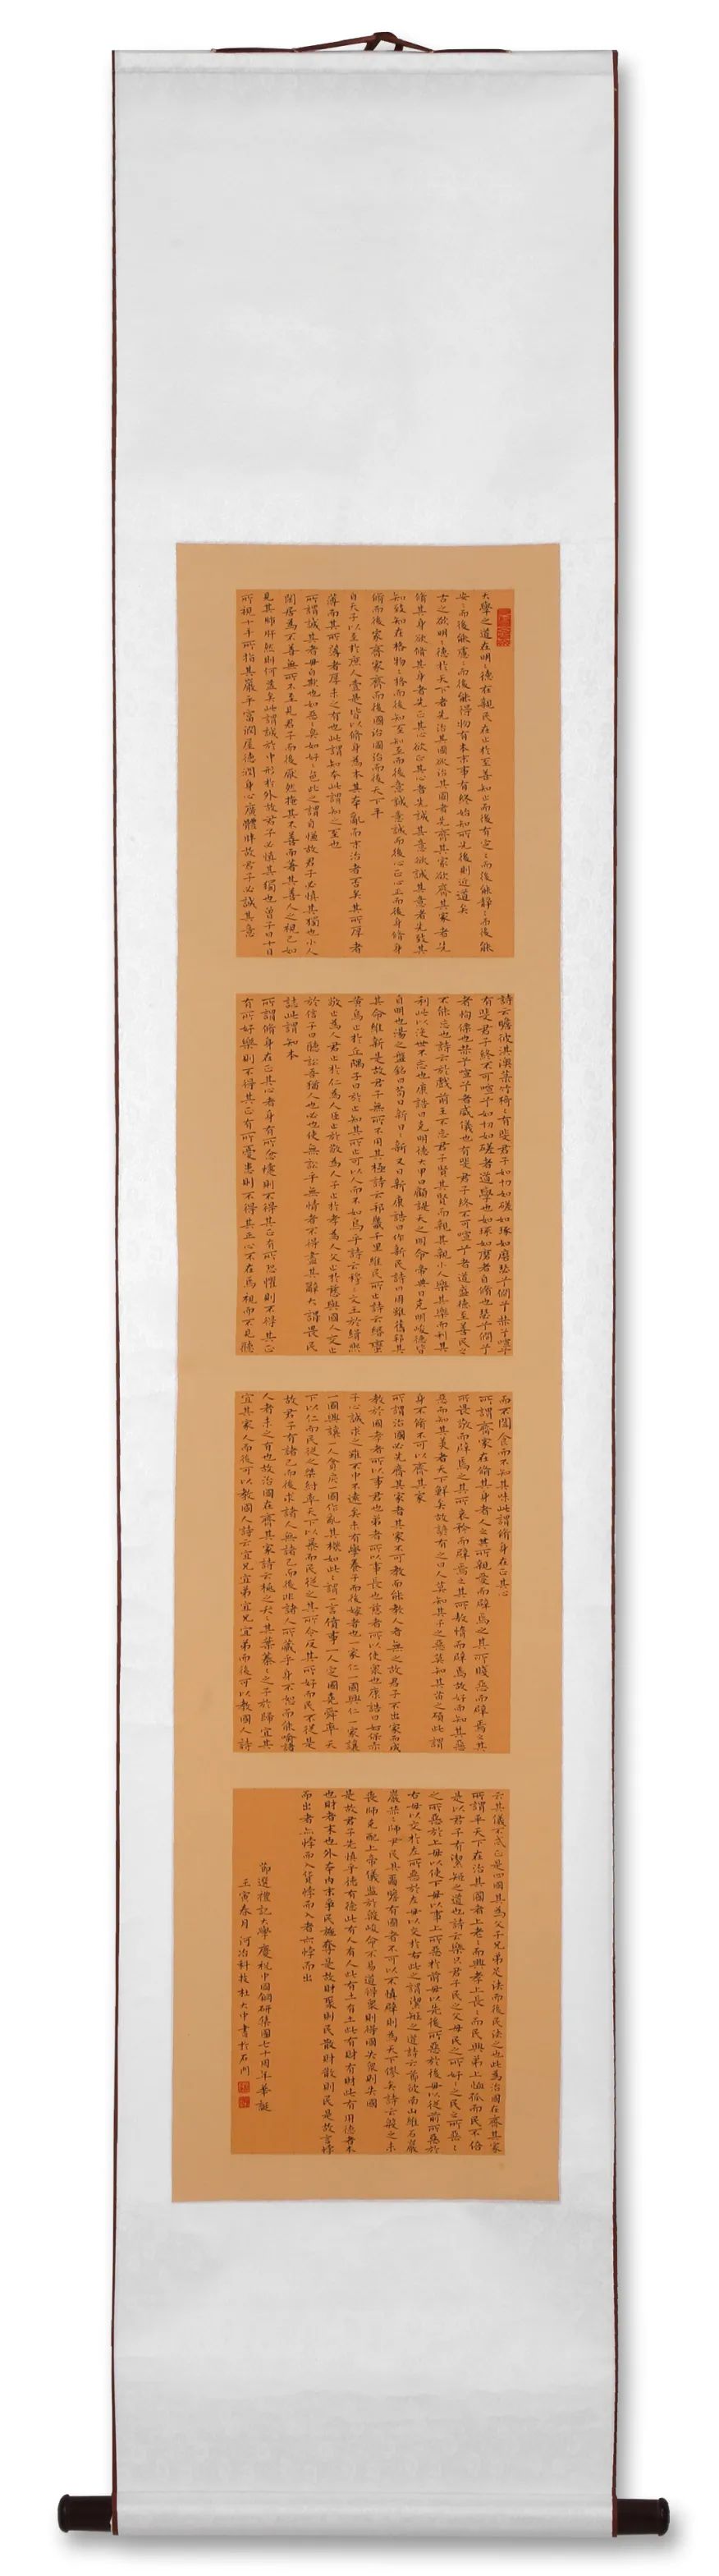 大學之道在明〻德在親民在止於至善知止而後有定〻而後能靜〻而後能
安〻而後能慮〻而後能得物有本末事有終始知所先後則近道矣
古之欲明〻德於天下者先治其國欲治其國者先齊其家欲齊其家者先
脩其身欲脩其身者先正其心欲正其心者先誠其意欲誠其意者先致其
知致知在格物〻格而後知至知至而後意誠意誠而後心正心正而後身脩身
脩而後家齊家齊而後國治國治而後天下平
自天子以至於庶人壹是皆以脩身為本其本亂而末治者否矣其所厚者
薄而其所薄者厚未之有也此謂知本此謂知之至也
所謂誠其者毋自欺也如惡〻臭如好〻色此之謂自慊故君子必慎其獨也小人
閒居為不善無所不至見君子而後厭然掩其不善而著其善人之視己如
見其肺肝然則何益矣此謂誠於中形於外故君子必慎其獨也曾子曰十目
所視十手所指其嚴乎富潤屋德潤身心廣體胖故君子必誠其意
詩云瞻彼淇澳菉竹猗〻有斐君子如切如磋如琢如磨瑟兮僴兮赫兮喧兮
有斐君子終不可喧兮如切如磋者道學也如琢如磨者自脩也瑟兮僴兮
者恂慄也赫兮喧兮者威儀也有斐君子終不可喧兮者道盛德至善民之
不能忘也詩云於戲前王不忘君子賢其賢而親其親小人樂其樂而利其
利此以沒世不忘也康誥曰克明德大甲曰顧諟天之明命帝典曰克明峻德皆
自明也湯之盤銘曰苟日新日〻新又日新康誥曰作新民詩曰周雖舊邦其
其命維新是故君子無所不用其極詩云邦畿千里維民所止詩云緡蠻
黃鳥止於丘隅子曰於止知其所止可以人而不如鳥乎詩云穆〻文王於緝熙
敬止為人君止於仁為人臣止於敬為人子止於孝為人父止於慈與國人交止
於信子曰聽訟吾猶人也必也使無訟乎無情者不得盡其辭大謂畏民
誌此謂知本
所謂脩身在正其心者身有所忿懥則不得其正有所恐懼則不得其正
有所好樂則不得其正有所憂患則不得其正心不在焉視而不見聽
而不聞食而不知其味此謂脩身在正其心
所謂齊家在脩其身者人之其所親愛而辟焉之其所賤惡而辟焉之其
所畏敬而辟焉之其所哀矜而辟焉之其所敖惰而辟焉故好而知其惡
惡而知其美者天下鮮矣故諺有之曰人莫知其子之惡莫知其苗之碩此謂
身不脩不可以齊其家
所謂治國必先齊其家者其家不可教而能教人者無之故君子不出家而成
教於國孝者所以事君也弟者所以事長也慈者所以使衆也康誥曰如保赤
子心誠求之雖不中不遠矣未有學養子而後嫁者也一家仁一國興仁一家讓
一國興讓一人貪戾一國作亂其機如此〻謂一言僨事一人定國堯舜率天
下以仁而民從之桀紂率天下以暴而民從之其所令反其所好而民不從是
故君子有諸己而後求諸人無諸己而後非諸人所藏乎身不恕而能喻諸
人者未之有也故治國在齊其家詩云桃之夭〻其葉蓁〻之子於歸宜其
宜其家人而後可以教國人詩云宜兄宜弟宜兄宜弟而後可以教國人詩
云其儀不忒正是四國其為父子兄弟足法而後民法之也此為治國在齊其家
所謂平天下在治其國者上老〻而興孝上長〻而民興弟上恤孤而民不倍
是以君子有潔矩之道也詩云樂只君子民之父母民之所好〻之民之所惡〻
之所惡於上毋以使下毋以事上所惡於前毋以先後所惡於後毋以從前所惡於
右毋以交於左所惡於左毋以交於右此之謂潔矩之道詩云節彼南山維石巖
巖赫〻師尹民具爾瞻有國者不可以不慎辟則為天下僇矣詩云殷之未
喪師克配上帝儀監於殷峻命不易道得衆則得國失衆則失國
是故君子先慎乎德有德此有人有人此有土有土此有財有財此有用德者本
也財者末也外本內末爭民施奪是故財聚則民散財散則民是故言悖
而出者亦悖而入貨悖而入者亦悖而出
節選禮記大學慶祝中國鋼研集團七十周年華誕
壬寅春月河冶科技杜大中書於石門